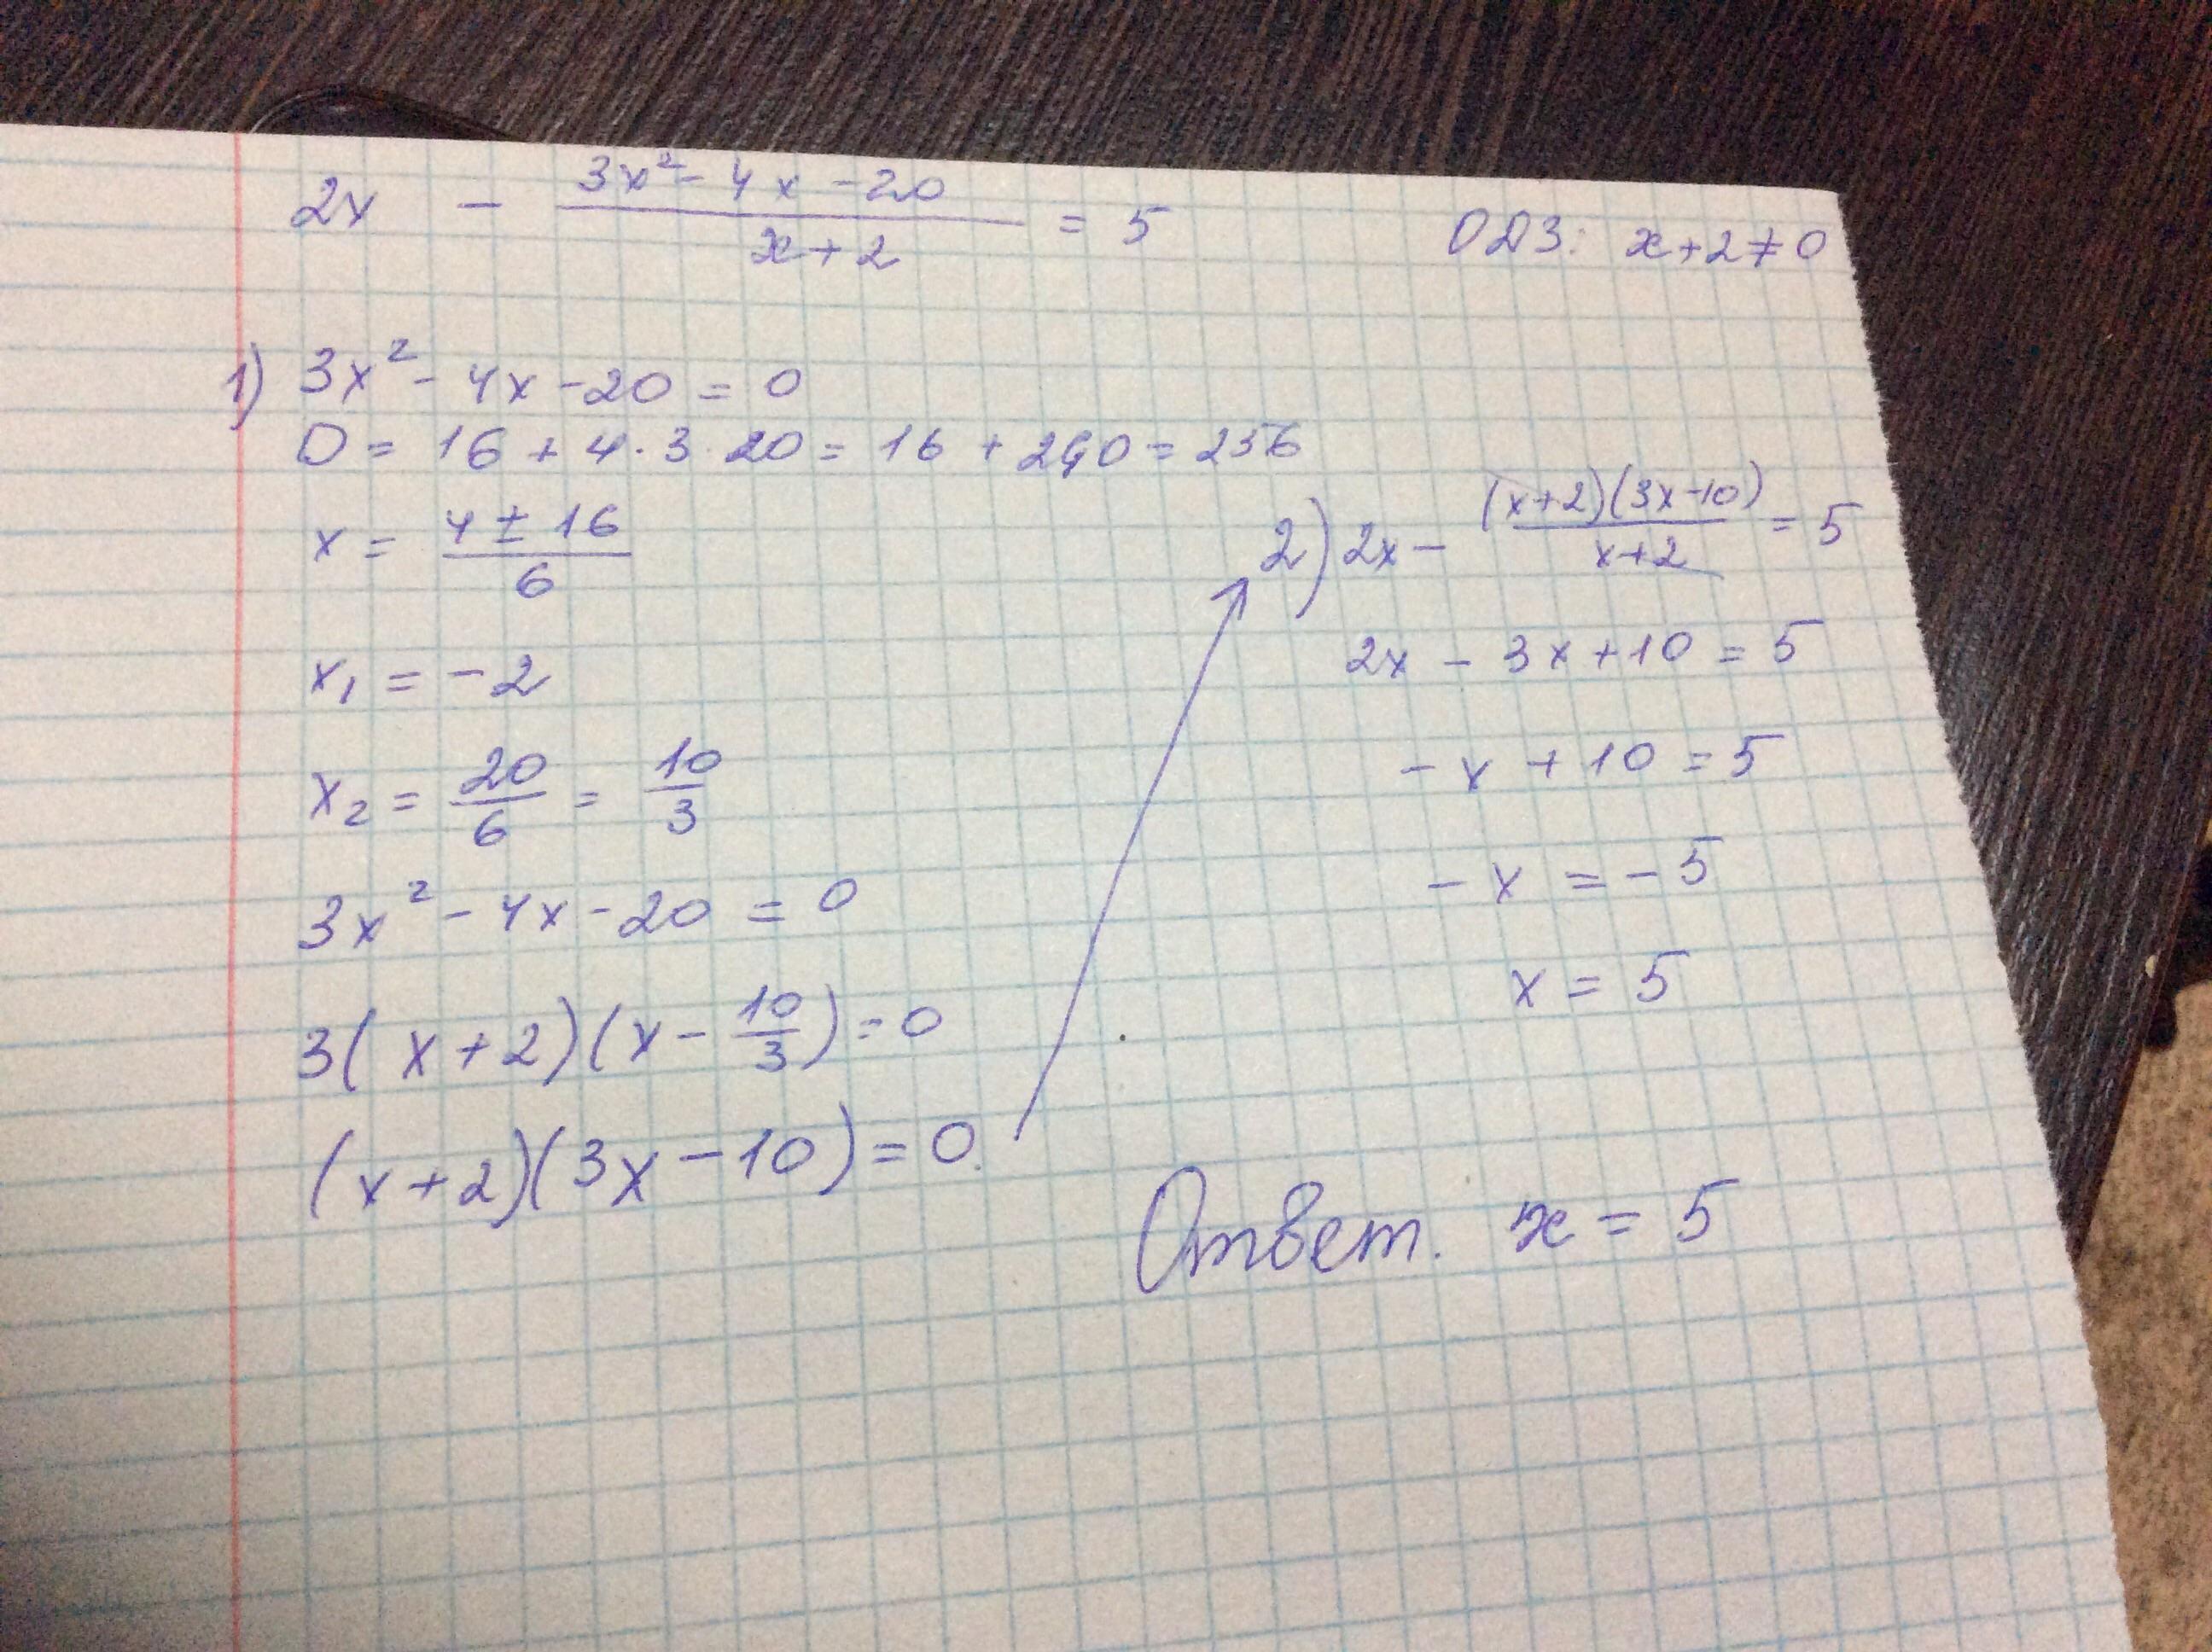 2x - (3x² - 4x - 20)/(x + 2) = 5
ОДЗ: x + 2 ≠ 0
1) 3x² - 4x - 20 = 0
D = 16 + 4 · 3 · 20 = 16 + 240 = 256
x = (4 ± 16)/6
x₁ = -2
x₂ = 20/6 = 10/3
3x² - 4x - 20 = 0
3(x + 2)(x - 10/3) = 0
(x + 2)(3x - 10) = 0
2) 2x - (x+2)(3x-10)/(x+2) = 5
2x - 3x + 10 = 5
-x + 10 = 5
-x = -5
x = 5
Ответ. x = 5